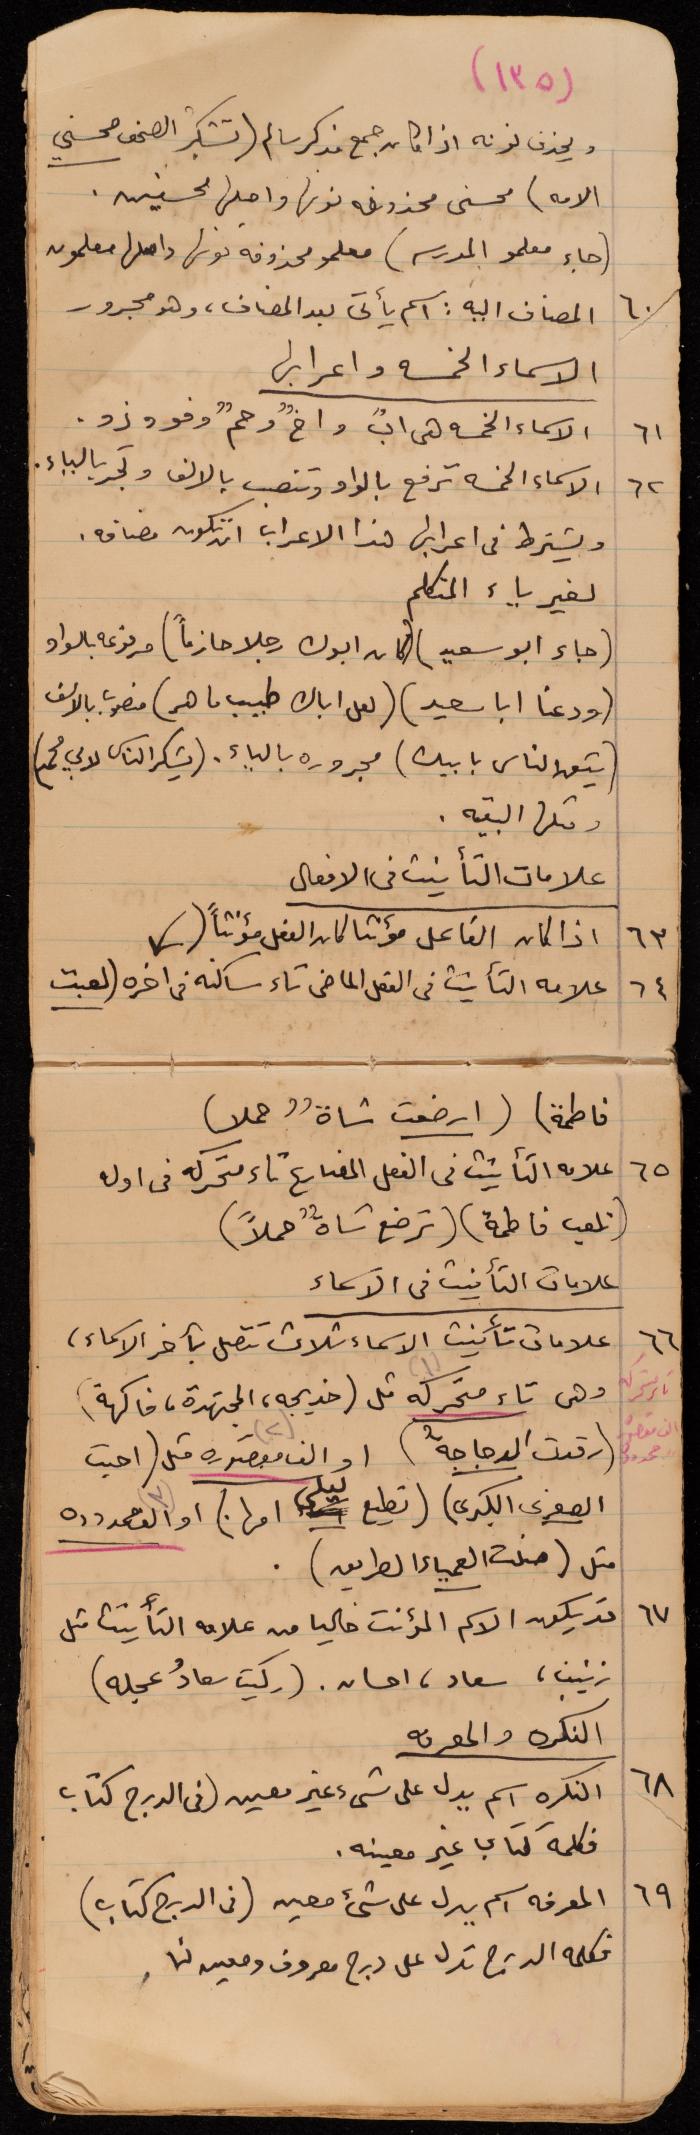 (١٣٥)
ويحذف نونه اذا كان جمع مذكر سالم (تشكر الصحف محسني
الامه) محسني محذوفه نونها واصلها محسنين .
(جاء معلمو المدرسه) معلمو محذوفة نونها واصلها معلمون
٦٠ المضاف اليه : اسم يأتي بعد المضاف، وهو مجرور
الاسماء الخمسه واعرابها
٦١ الاسماء الخمسه هى ابٌ واخٌ وحمٌ وفو وذو .
٦٢ الاسماء الخمسه ترفع بالواو وتنصب بالالف وتجر بالياء .
ويشترط فى اعرابها هذا الاعراب ان تكون مضافه .
لغير ياء المتكلم
(جاء ابو سعيد) (كان ابوك رجلا حازماً) مرفوعه بالواو
(ودعنا ابا سعيد) (لعل اباك طبيب ماهر) منصوب بالالف
(يثق الناس بابيك) مجروره بالياء . (يشكر الناس لابي محمد)
ومثلها البقيه .
علامات التأنيث فى الافعال
٦٣ اذا كان الفاعل مؤنثا كان الفعل مؤنثاً (
٦٤ علامه التأنيث فى الفعل الماضى تاء ساكنه فى اخره (لعبت
فاطمة) (ارضعت شاةٌ حملا)
٦٥ علامه التأنيث فى الفعل المضارع تاء متحركه فى اوله
(تلعب فاطمة) (ترضع شاةٌ حملاً)
علامات التأنيث فى الاسماء
٦٦ علامات تأنيث الاسماء ثلاث تتصل بآخر الاسماء،
تاء متحركه
وهى تاء متحركه (١) مثل (خديجه، المجتهدة، فاكهة)
الف مقصوره
ممدوده
(رقدت الدجاجة) او الف مقصوره (٢) مثل (احبت
الصغرى الكبرى) (تطيع ليلى امها) او الف ممدوده (٣)
مثل (ضلت العمياء الطريق) .
٦٧ قد يكون الاسم المؤنث خاليا من علامه التأنيث مثل
زينب، سعاد، احسان . (ركبت سعادُ عجله)
النكره والمعرفه
٦٨ النكره اسم يدل على شىء غير معين (فى الدرج كتاب
فكلمة كتاب غير معينه .
٦٩ المعرفه اسم يدل على شىء معين (فى الدرج كتاب)
فكلمه الدرج تدل على درج معروف ومعين لنا .